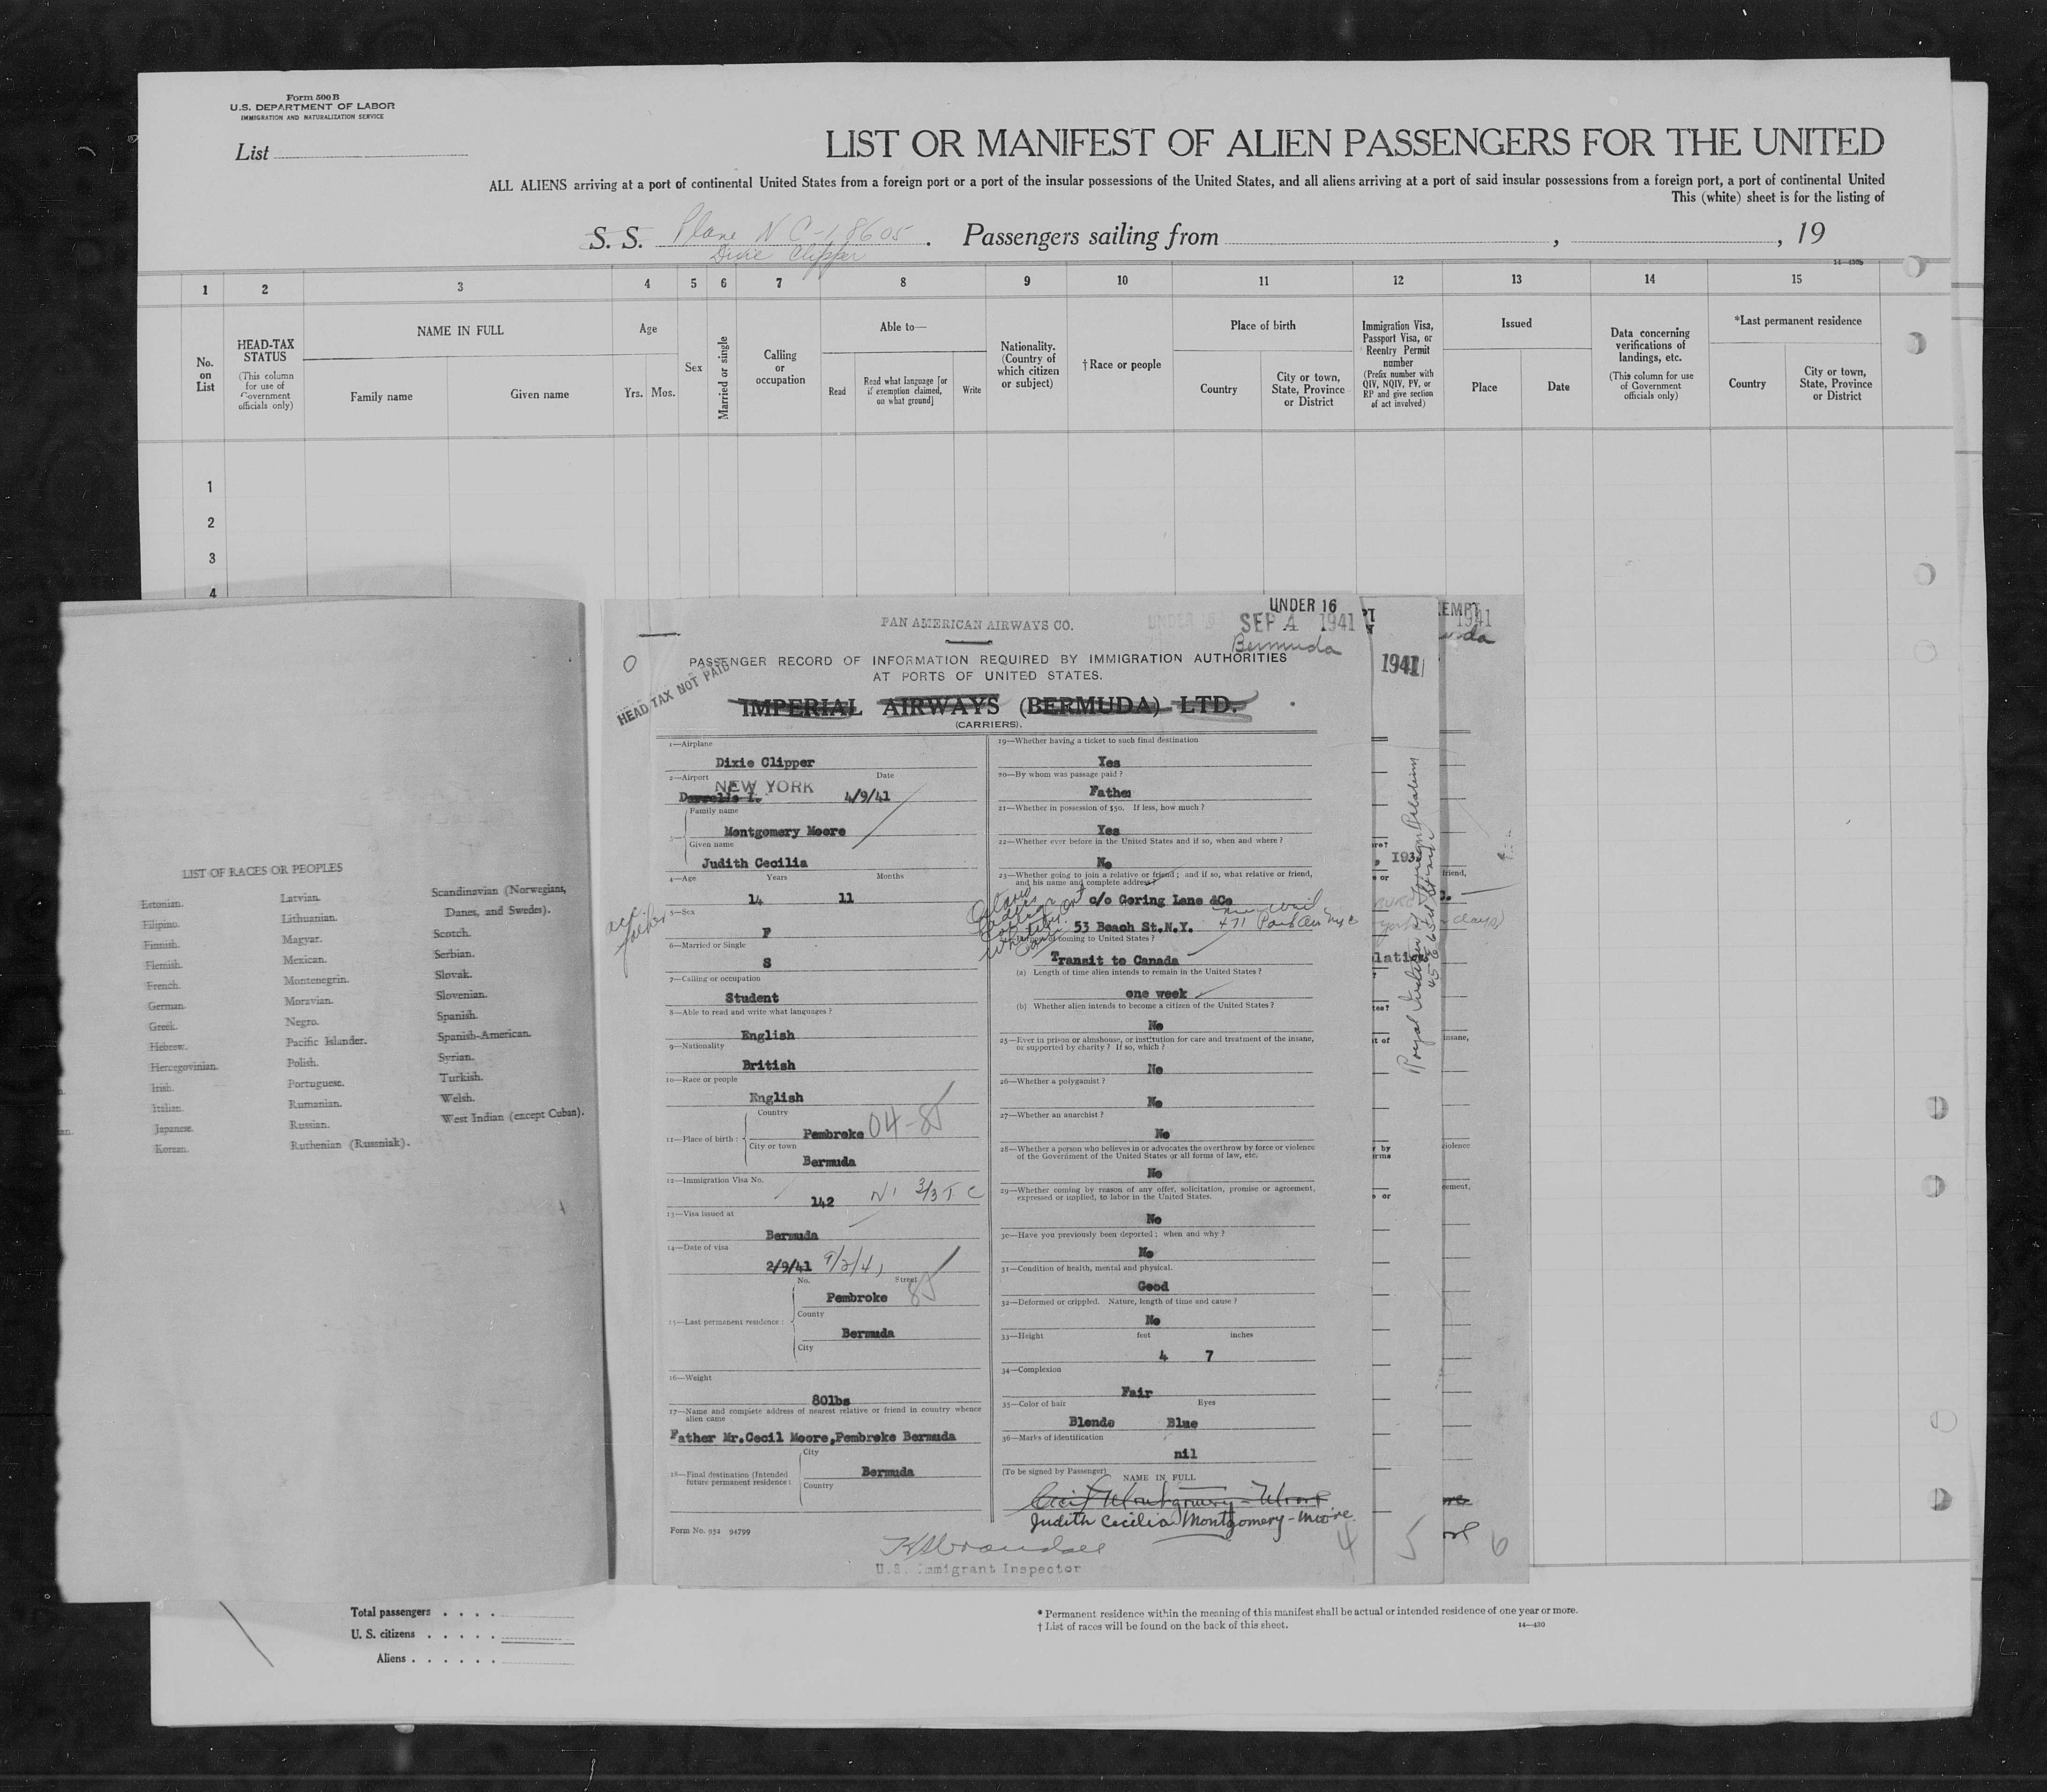 Form 500 B
U.S. DEPARTMENT OF LABOR
IMMIGRATION AND NATURALIZATION SERVICE
List
LIST OR MANIFEST OF ALIEN PASSENGERS FOR THE UNITED
ALL ALIENS arriving at a port of continental United States from a foreign port or a port of the insular possessions of the United States, and all aliens arriving at a port of said insular possessions from a foreign port, a port of continental United
This (white) sheet is for the listing of
S. S. Plane NC-18605. Passengers sailing from , , 19
Dixie Clipper
14—430b
1 2 3 4 5 6 7 8 9 10 11 12 13 14 15
No. on List
HEAD-TAX STATUS
(This column for use of Government officials only)
NAME IN FULL
Family name
Given name
Age
Yrs. Mos.
Sex
Married or single
Calling or occupation
Able to—
Read
Read what language [or if exemption claimed, on what ground]
Write
Nationality. (Country of which citizen or subject)
† Race or people
Place of birth
Country
City or town, State, Province or District
Immigration Visa, Passport Visa, or Reentry Permit number
(Prefix number with QIV, NQIV, PV, or RP and give section of act involved)
Issued
Place
Date
Data concerning verifications of landings, etc.
(This column for use of Government officials only)
*Last permanent residence
Country
City or town, State, Province or District
1
2
3
4
LIST OF RACES OR PEOPLES
Estonian. Latvian. Scandinavian (Norwegians,
Filipino. Lithuanian. Danes, and Swedes).
Finnish. Magyar. Scotch.
Flemish. Mexican. Serbian.
French. Montenegrin. Slovak.
German. Moravian. Slovenian.
Greek. Negro. Spanish.
Hebrew. Pacific Islander. Spanish-American.
Hercegovinian. Polish. Syrian.
Irish. Portuguese. Turkish.
Italian. Rumanian. Welsh.
Japanese. Russian. West Indian (except Cuban).
Korean. Ruthenian (Russniak).
UNDER 16
PAN AMERICAN AIRWAYS CO.
SEP 4 1941
Bermuda
PASSENGER RECORD OF INFORMATION REQUIRED BY IMMIGRATION AUTHORITIES
AT PORTS OF UNITED STATES.
HEAD TAX NOT PAID
IMPERIAL AIRWAYS (BERMUDA) LTD.
(CARRIERS).
1—Airplane
Dixie Clipper
2—Airport Date
NEW YORK
4/9/41
3— Family name
Montgomery Moore
Given name
Judith Cecilia
4—Age Years Months
14 11
5—Sex
F
acc. father
6—Married or Single
S
7—Calling or occupation
Student
8—Able to read and write what languages ?
English
9—Nationality
British
10—Race or people
English
11—Place of birth :
Country
Pembroke 04-85
City or town
Bermuda
12—Immigration Visa No.
142
13—Visa issued at
Bermuda
14—Date of visa
2/9/41 9/2/41
15—Last permanent residence :
No. Street
Pembroke 85
County
Bermuda
City
16—Weight
80lbs
17—Name and complete address of nearest relative or friend in country whence alien came
Father Mr.Cecil Moore,Pembroke Bermuda
18—Final destination (Intended future permanent residence :
City
Bermuda
Country
Form No. 952 94799
19—Whether having a ticket to such final destination
Yes
20—By whom was passage paid ?
Father
21—Whether in possession of $50. If less, how much ?
Yes
22—Whether ever before in the United States and if so, when and where ?
No
23—Whether going to join a relative or friend ; and if so, what relative or friend, and his name and complete address ?
c/o Goring Lane &Co
53 Beach St.N.Y.
471 Park Ave NYC
coming to United States ?
Transit to Canada
(a) Length of time alien intends to remain in the United States ?
one week
(b) Whether alien intends to become a citizen of the United States ?
No
25—Ever in prison or almshouse, or institution for care and treatment of the insane, or supported by charity ? If so, which ?
No
26—Whether a polygamist ?
No
27—Whether an anarchist ?
No
28—Whether a person who believes in or advocates the overthrow by force or violence of the Government of the United States or all forms of law, etc.
No
29—Whether coming by reason of any offer, solicitation, promise or agreement, expressed or implied, to labor in the United States.
No
30—Have you previously been deported ; when and why ?
No
31—Condition of health, mental and physical.
Good
32—Deformed or crippled. Nature, length of time and cause ?
No
33—Height feet inches
4 7
34—Complexion
Fair
35—Color of hair Eyes
Blonde Blue
36—Marks of identification
nil
(To be signed by Passenger)
NAME IN FULL
Cecil Montgomery-Moore
Judith Cecilia Montgomery-Moore
U.S. Immigrant Inspector
4 5 6
1941
1941
Total passengers
U. S. citizens
Aliens
* Permanent residence within the meaning of this manifest shall be actual or intended residence of one year or more.
† List of races will be found on the back of this sheet.
14—430